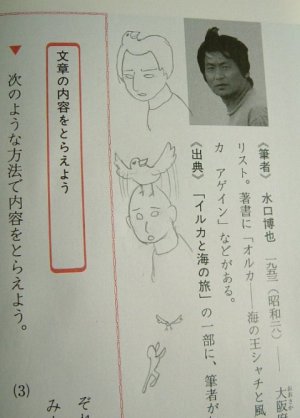 《筆者》 水口博也 一九五三(昭和二八)― 大阪
リスト。著書に「オルカ――海の王シャチと風
カ アゲイン」などがある。
《出典》 「イルカと海の旅」の一部に、筆者が
文章の内容をとらえよう
▼ 次のような方法で内容をとらえよう。
(3)
それ
み